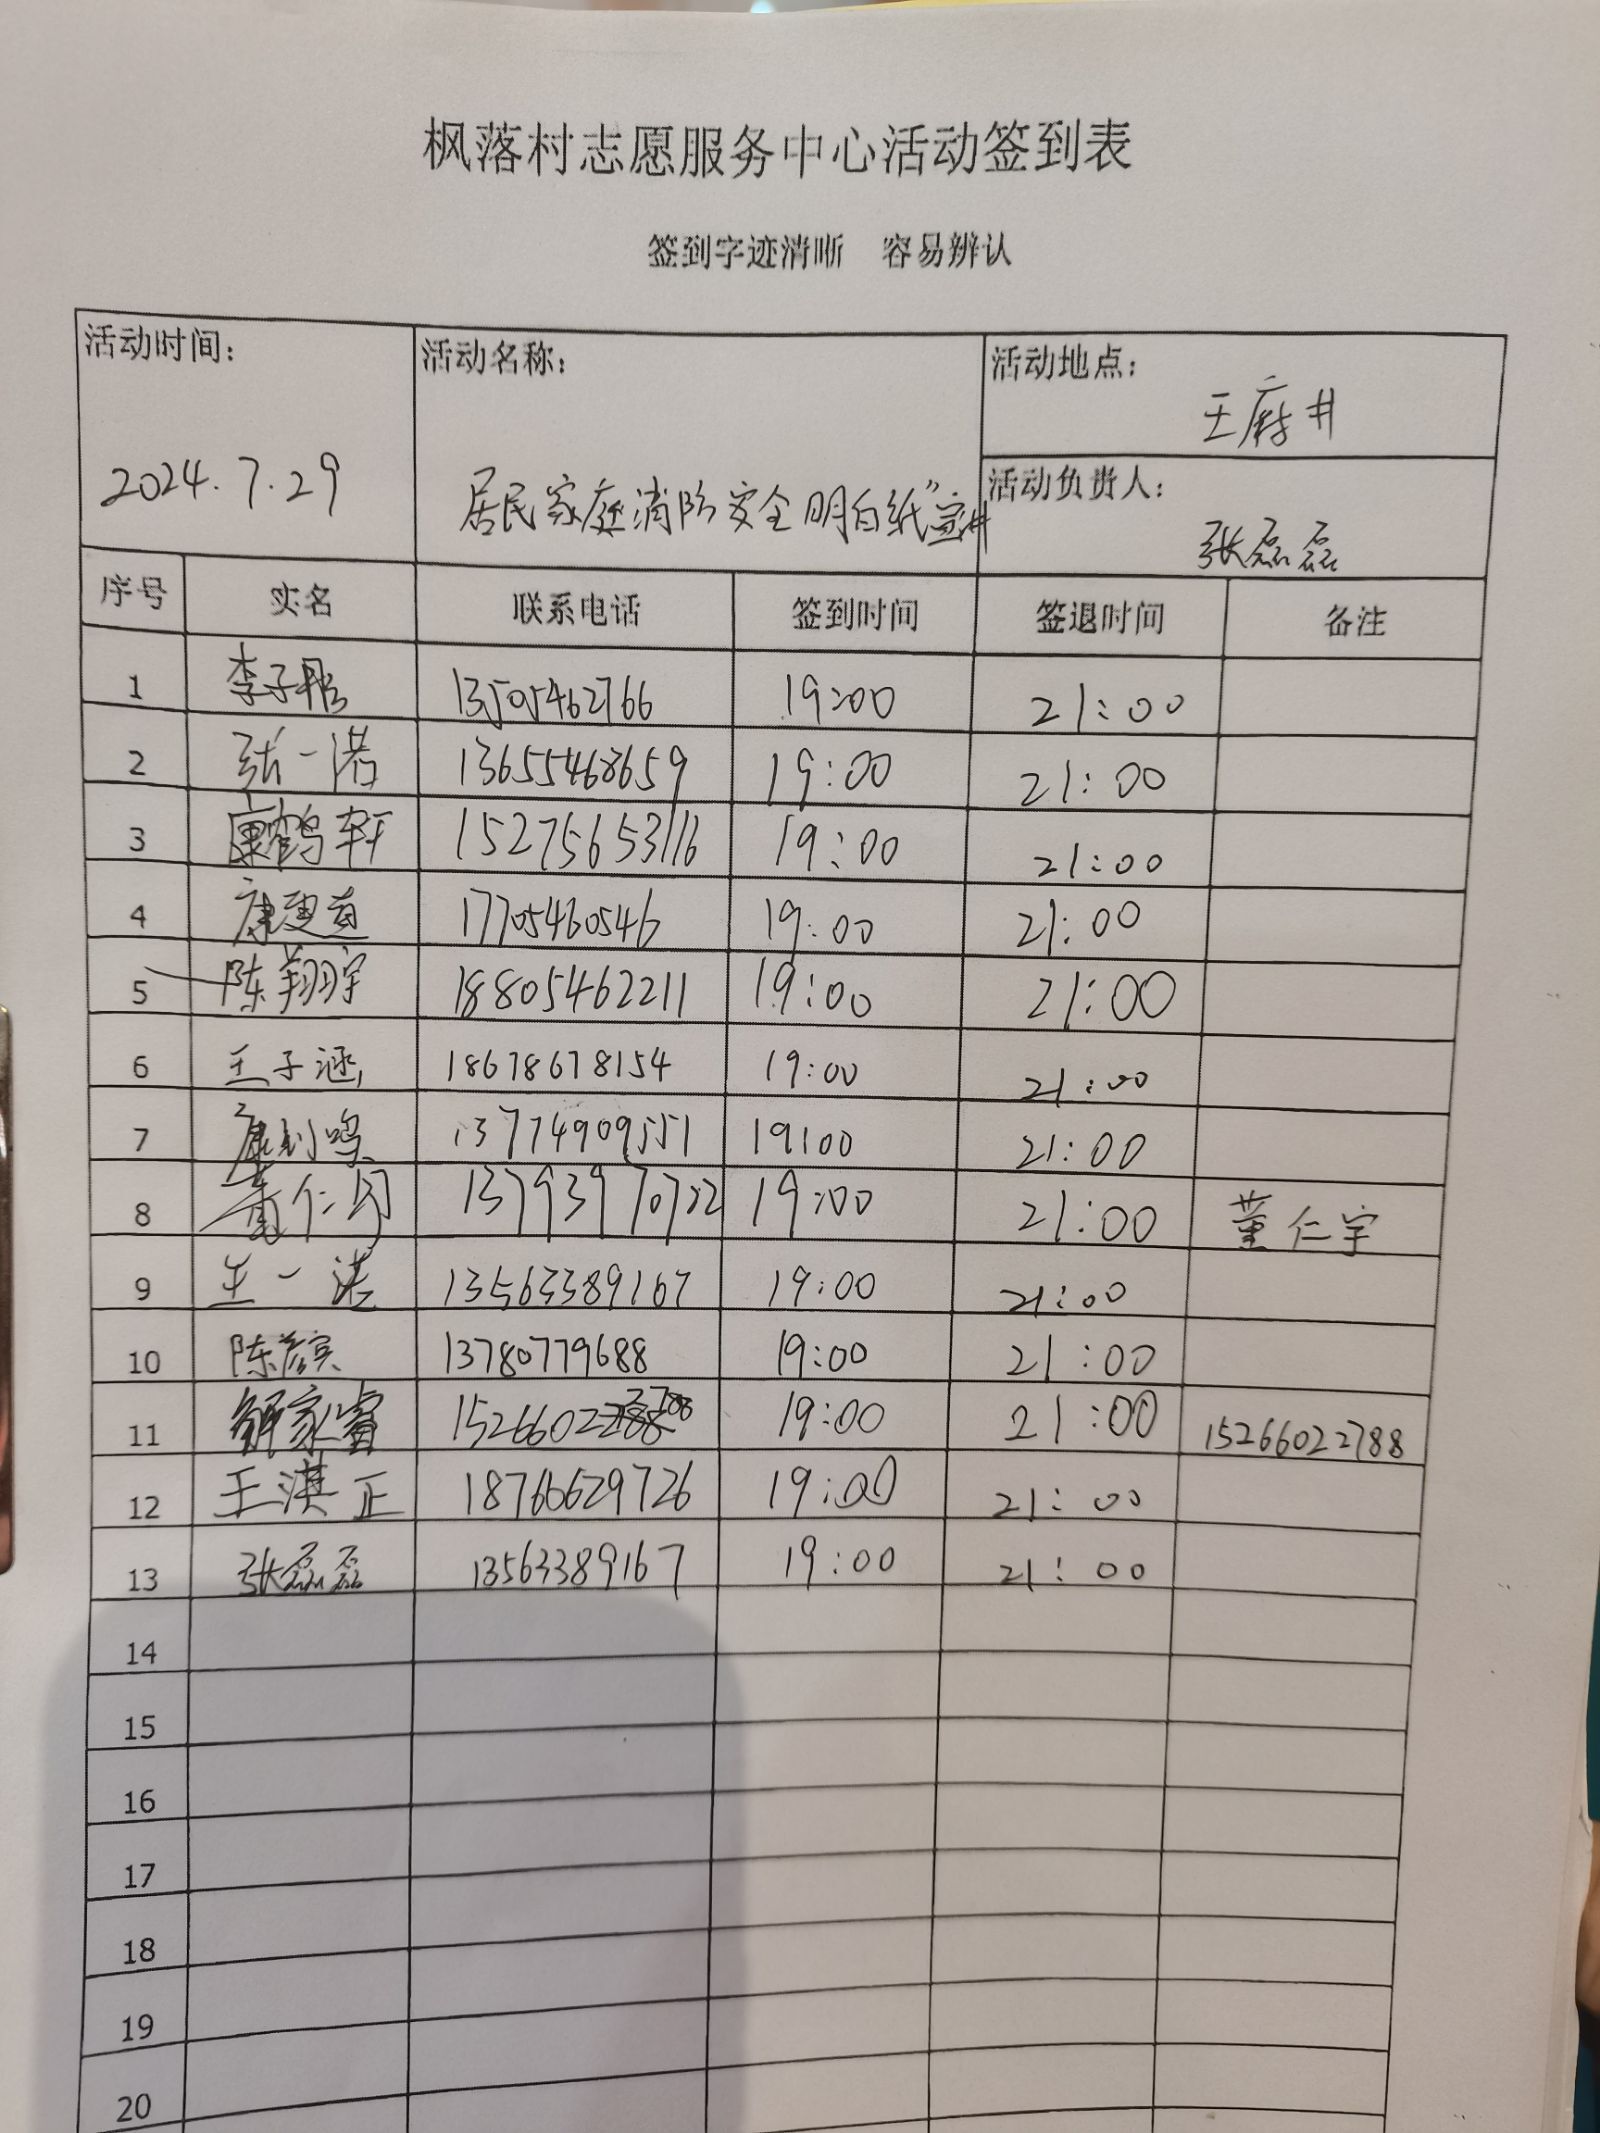 枫落村志愿服务中心活动签到表
签到字迹清晰 容易辨认
活动时间: 2024.7.29
活动名称: 居民家庭消防安全明白纸"
活动地点: 王府井
活动负责人: 张磊磊
序号 实名 联系电话 签到时间 签退时间 备注
1 李子彤 13505462766 19:00 21:00
2 张一诺 13655468659 19:00 21:00
3 康鹤轩 15275653116 19:00 21:00
4 康 17705460546 19:00 21:00
5 陈翔宇 18805462211 19:00 21:00
6 王子涵 18678678154 19:00 21:00
7 康 鸣 13774909551 19:00 21:00
8 董仁宇 13793970722 19:00 21:00 董仁宇
9 王一诺 13563389167 19:00 21:00
10 陈彦宾 13780779688 19:00 21:00
11 解家睿 1526602 19:00 21:00 15266022788
12 王淇正 18760629726 19:00 21:00
13 张磊磊 13563389167 19:00 21:00
14
15
16
17
18
19
20